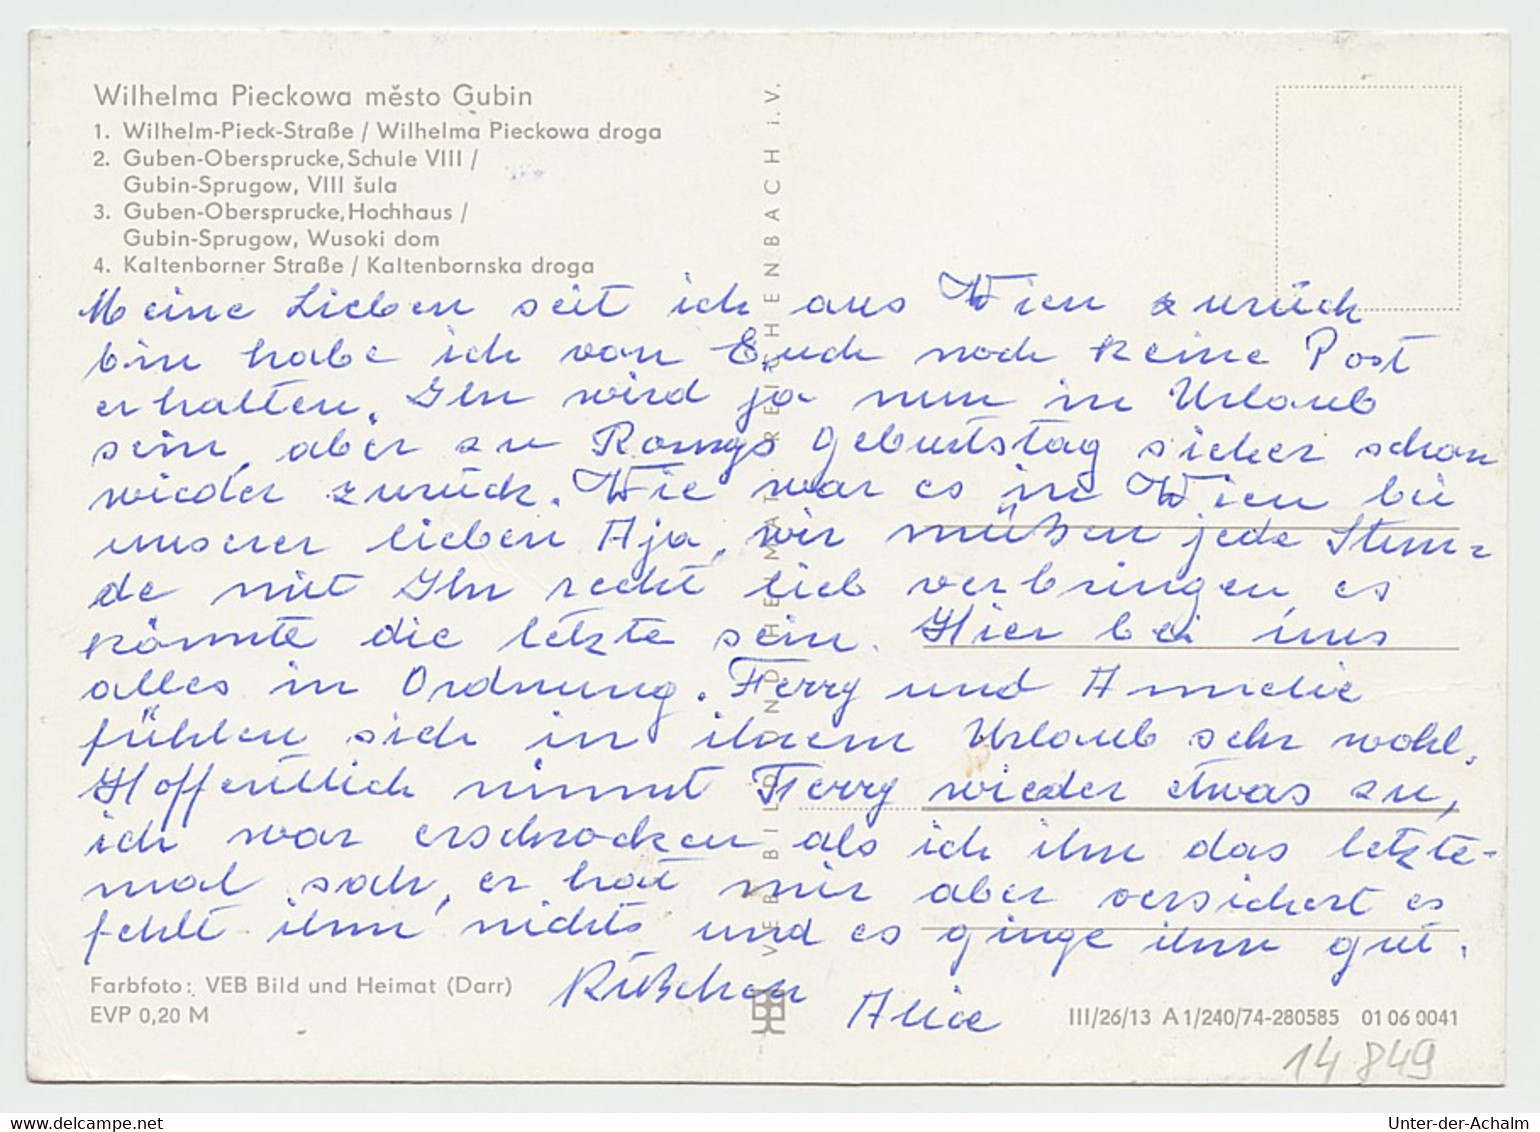 Wilhelma Pieckowa město Gubin
1. Wilhelm-Pieck-Straße / Wilhelma Pieckowa droga
2. Guben-Obersprucke, Schule VIII /
Gubin-Sprugow, VIII šula
3. Guben-Obersprucke, Hochhaus /
Gubin-Sprugow, Wusoki dom
4. Kaltenborner Straße / Kaltenbornska droga
Meine Lieben seit ich aus Wien zurück
bin habe ich von Euch noch keine Post
erhalten. Ihr wird ja nun in Urlaub
sein, aber zu Romys Geburtstag sicher schon
wieder zurück. Wie war es in Wien bei
unserer lieben Aja, wir müßen jede Stun-
de mit Ihr recht lieb verbringen, es
könnte die letzte sein. Hier bei uns
alles in Ordnung. Ferry und Annelie
fühlen sich in ihrem Urlaub sehr wohl.
Hoffentlich nimmt Ferry wieder etwas zu,
ich war erschrocken als ich ihn das letzte-
mal sah, er hat mir aber versichert es
fehlt ihm nichts und es ginge ihm gut.
Küßchen
Alice
Farbfoto: VEB Bild und Heimat (Darr)
EVP 0,20 M
VEB BILD UND HEIMAT REICHENBACH i. V.
III/26/13 A 1/240/74-280585 01 06 0041
14 849
www.delcampe.net
Unter-der-Achalm